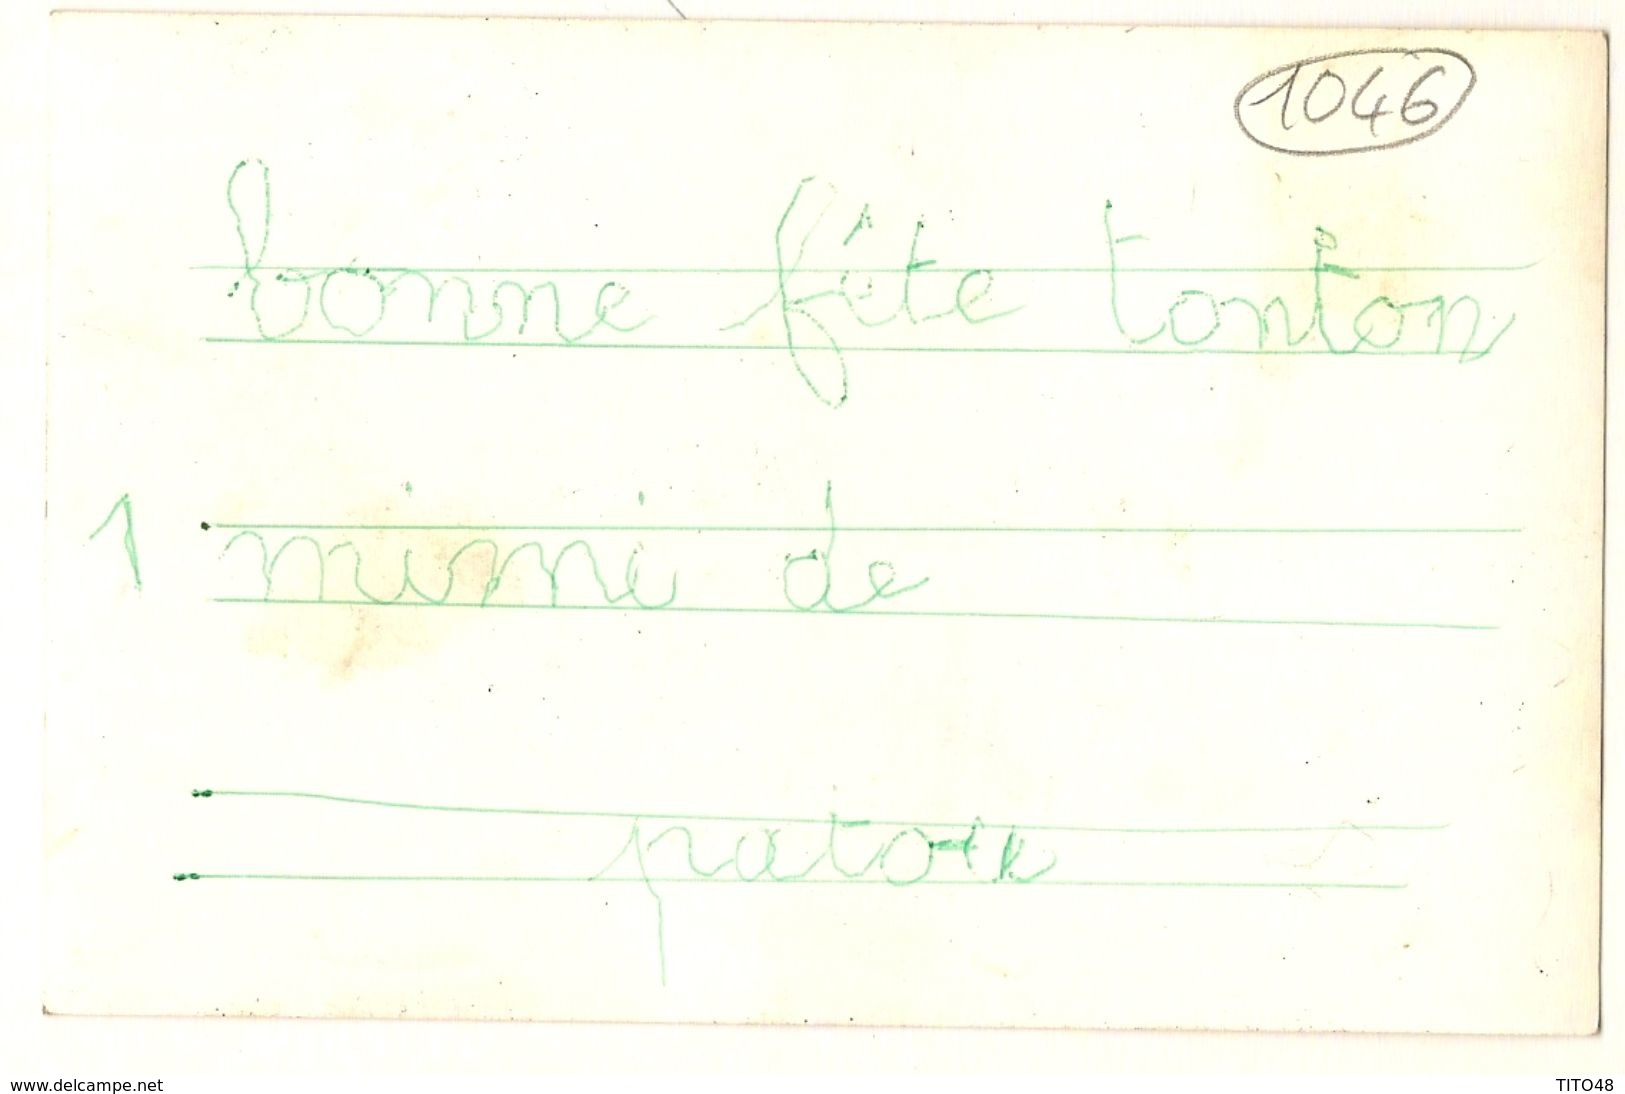 1046
bonne fête tonton
1 mimi de
www.delcampe.net
TITO48